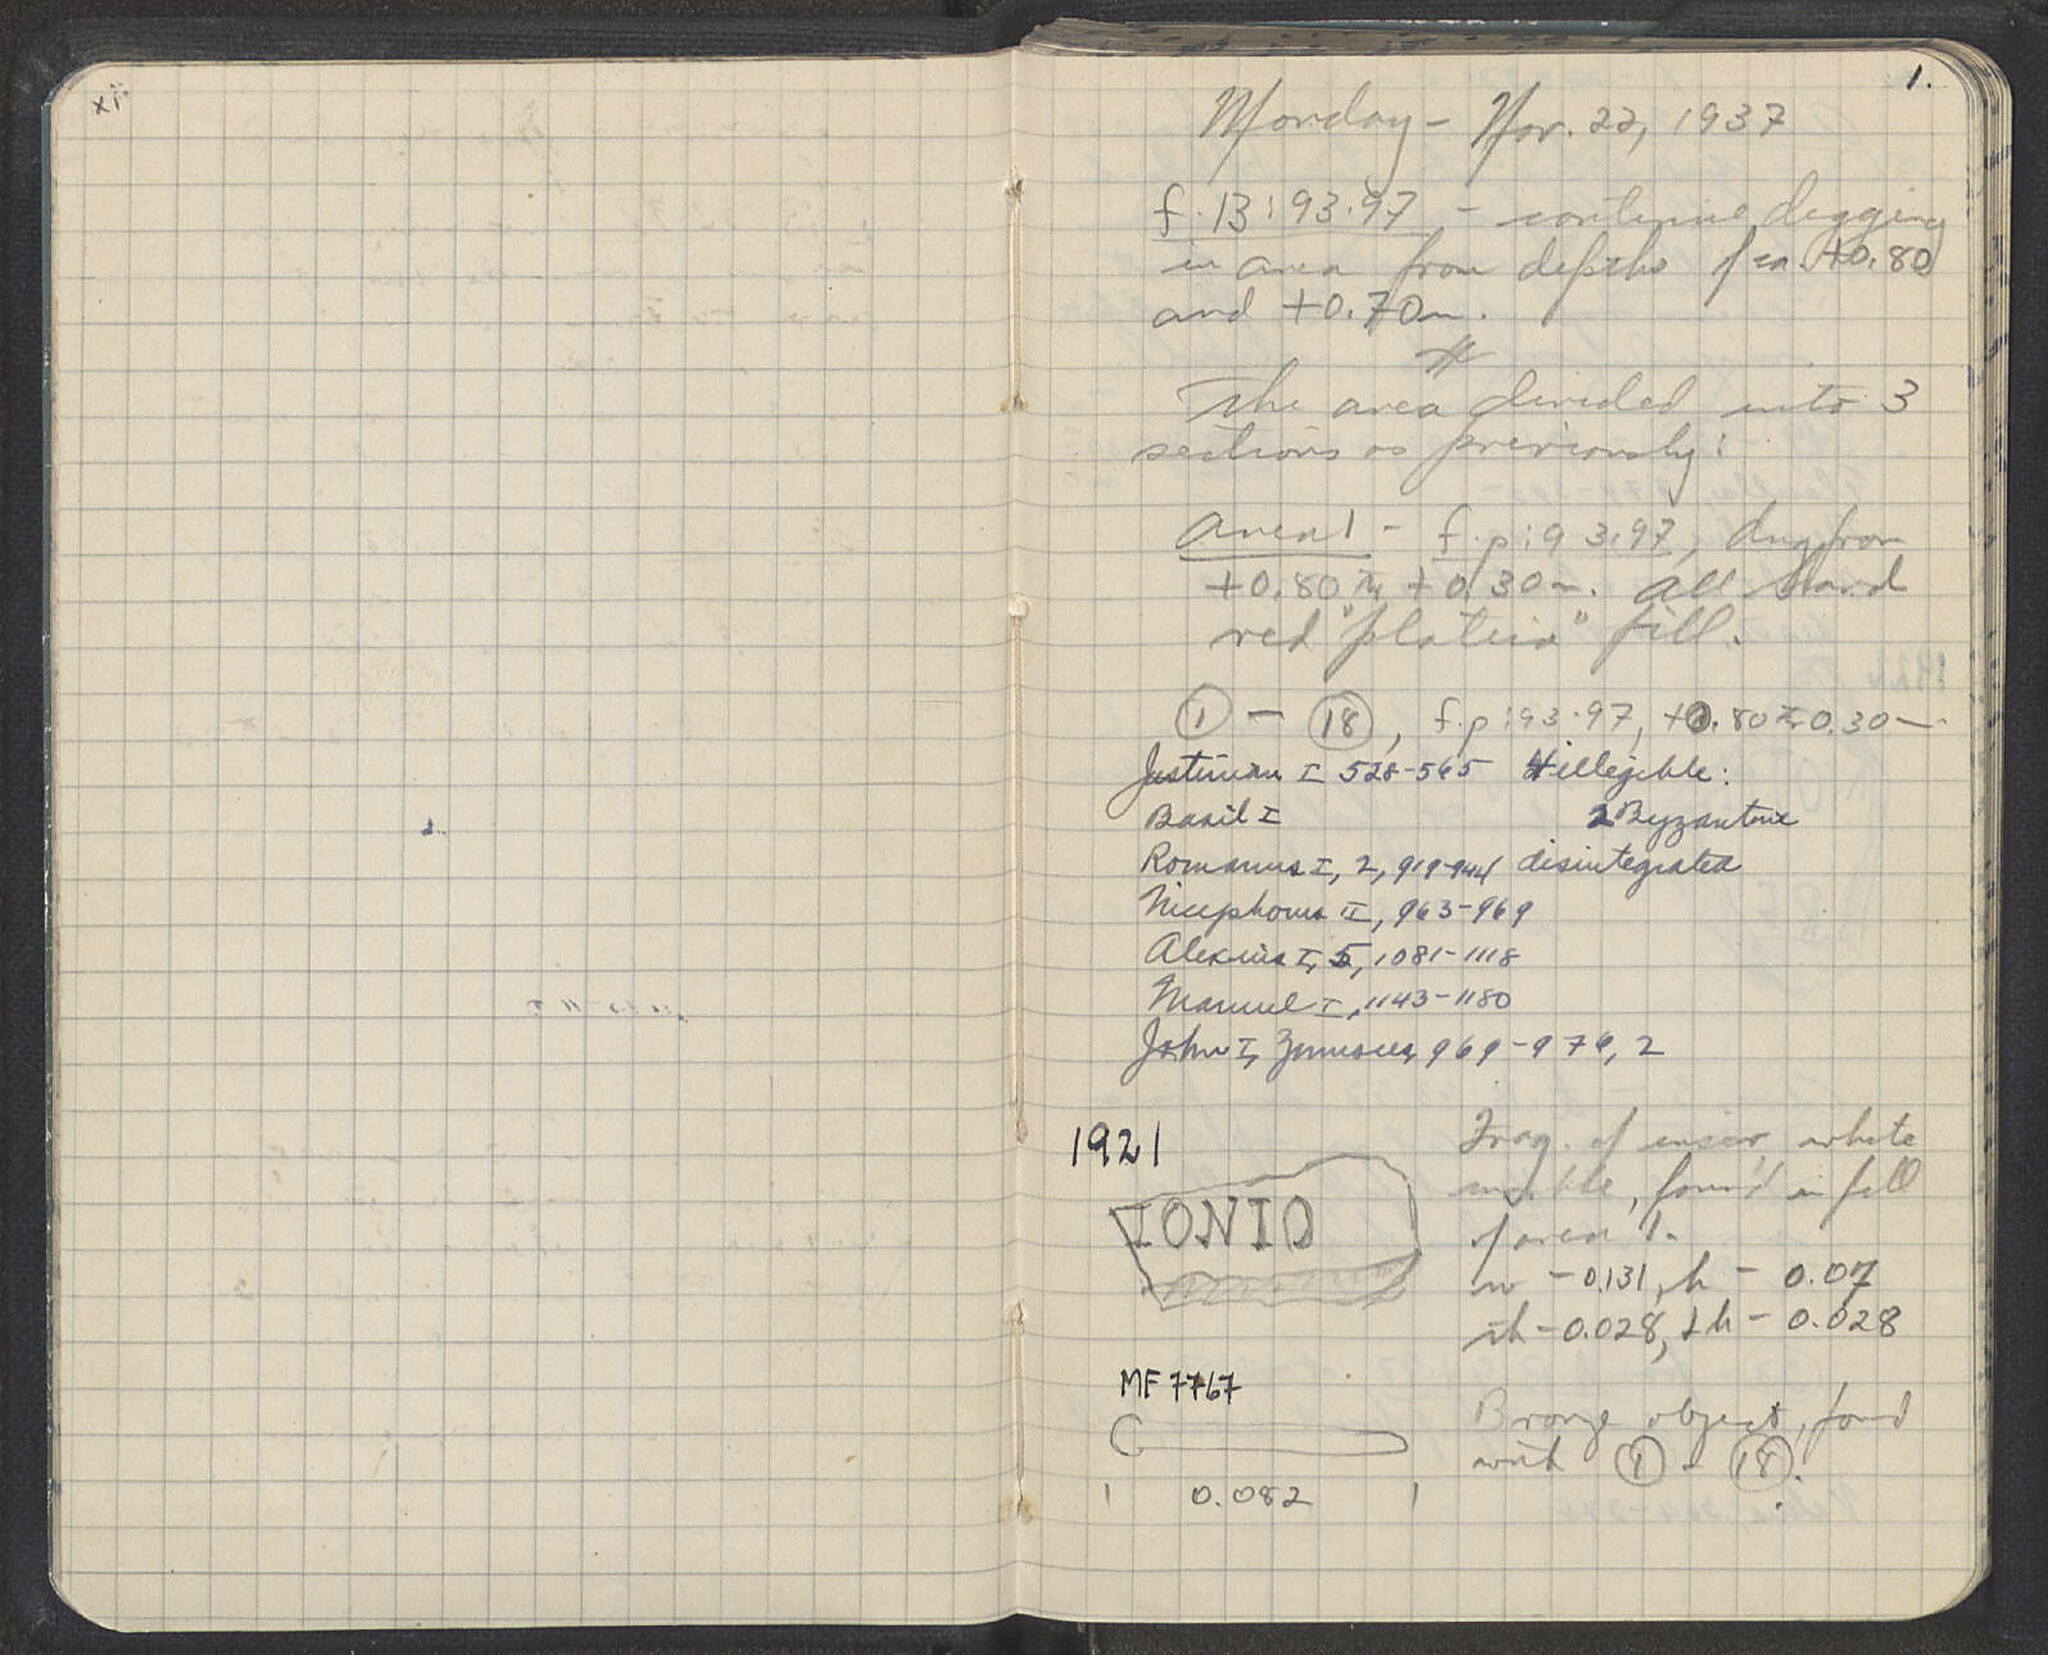 xi
1.
Monday - Nov. 22, 1937
f.13:93.97 - continue digging
in area from depths of ca. +0.80
and +0.70m.
The area divided into 3
sections as previously:
area 1 - f.p:93.97, dug from
+0.80 to +0.30m. All hard
red "plateia" fill.
1 - 18, f.p:93.97, +0.80 to 0.30m.
Justinian I 528-565 illegible:
Basil I 2 Byzantine
Romanus I, 2, 919-944 disintegrated
Nicephorus II, 963-969
Alexius I, 5, 1081-1118
Manuel I, 1143-1180
John I, Zimisces, 969-976, 2
1921
Frag. of inscr. white
marble, found in fill
of area 1.
IONIO
w - 0.131, h - 0.07
th - 0.028, lh - 0.028
MF 7767
Bronze object, found
with 1 - 18.
0.082